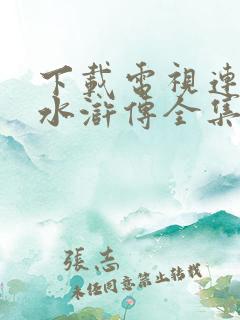 下載電視連
水滸傳全集
張志
未经同意禁止转载